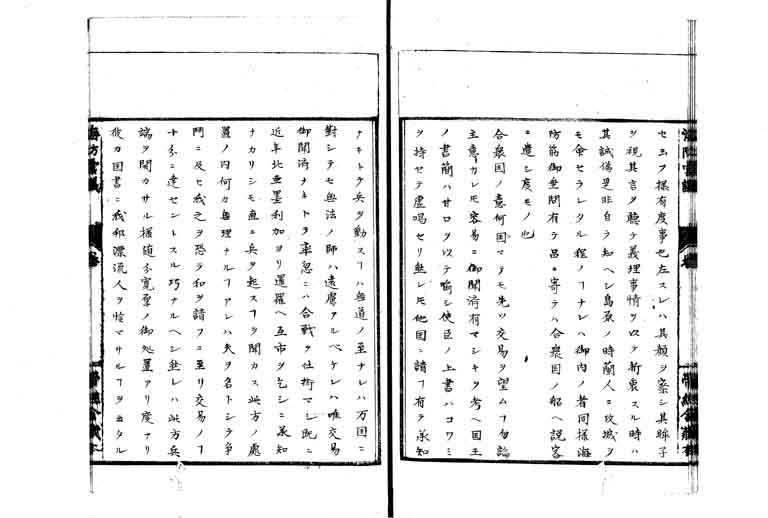 セ玉フ様有度事也左スレハ其顔ヲ察シ其眸子
ヲ視其言ヲ聴テ義理事情ヲ以テ折衷スル時ハ
其誠偽是非自ラ知ヘシ島原ノ時蘭人ニ攻城ヲ
モ命セラレタル程ノヿナレハ御内ノ者同様海
防筋御垂問有テ呂ニ寄テハ合衆国ノ船ヘ説客
ニ遣シ度モノ也
合衆国ノ意何国マテモ先ツ交易ヲ望ムヿ勿論
主意ナレモ容易ニ御聞済有マシキヲ考ヘ国王
ノ書簡ハ甘ロヲ以テ喩シ使臣ノ上書ハコワミ
ヲ持セテ虚喝セリ然レ𪜈他国ニ請フ有テ承知
ナキトテ兵ヲ動スヿハ無道ノ至ナレハ万国ニ
對シテモ無法ノ師ハ遠慮アルベケレハ唯交易
御聞済ナキトテ率忽ニハ合戦ヲ仕掛マシ既ニ
近年北亜墨利加ヨリ暹羅ヘ互市ヲ乞シニ承知
ナカリシモ直ニ兵ヲ起スヿヲ聞カス此方ノ處
置ノ内何カ無理ナルヿアレハ夫ヲ名トシテ争
鬥ニ及セ我之ヲ恐テ和ヲ請フニ至リ交易ノヿ
十分ニ達セントスル巧ナルヘシ然レハ此方兵
端ヲ開カサル様随分寛裕ノ御処置アリ度ナリ
彼カ国書ニ我邦漂流人ヲ恤マサルヿヲ云タル